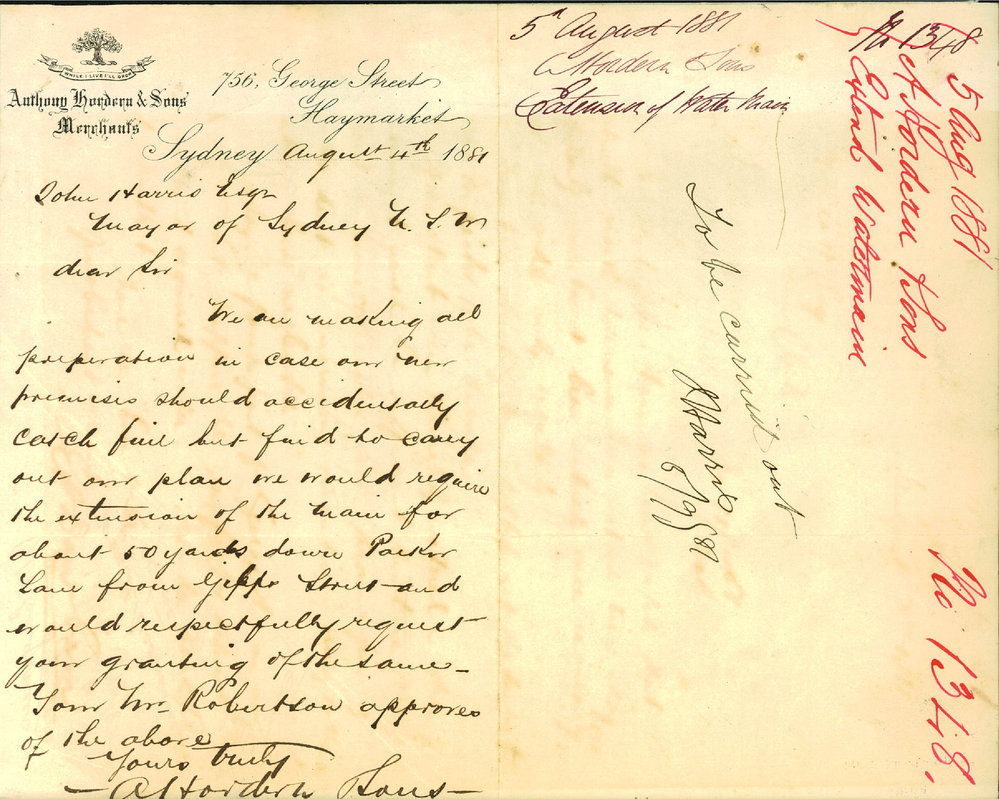 WHILE I LIVE I'LL GROW
Anthony Hordern & Sons
Merchants
756, George Street
Haymarket
Sydney August 4th 1881
John Harris Esqr
Mayor of Sydney N. S. W
dear Sir
We are making all
preparation in case our new
premises should accidentally
catch fire but find to carry
out our plan we would require
the extension of the main for
about 50 yards down Parker
Lane from Gipps Street and
would respectfully request
your granting of the same—
Your Mr Robertson approves
of the above
Yours truly
— A Hordern Sons —
5 August 1881
A Hordern & Sons
Extension of Water Main
To be carried out
J Harris
81
1348
5 Aug 1881
A Hordern & Sons
Extend Watermain
No 1348.